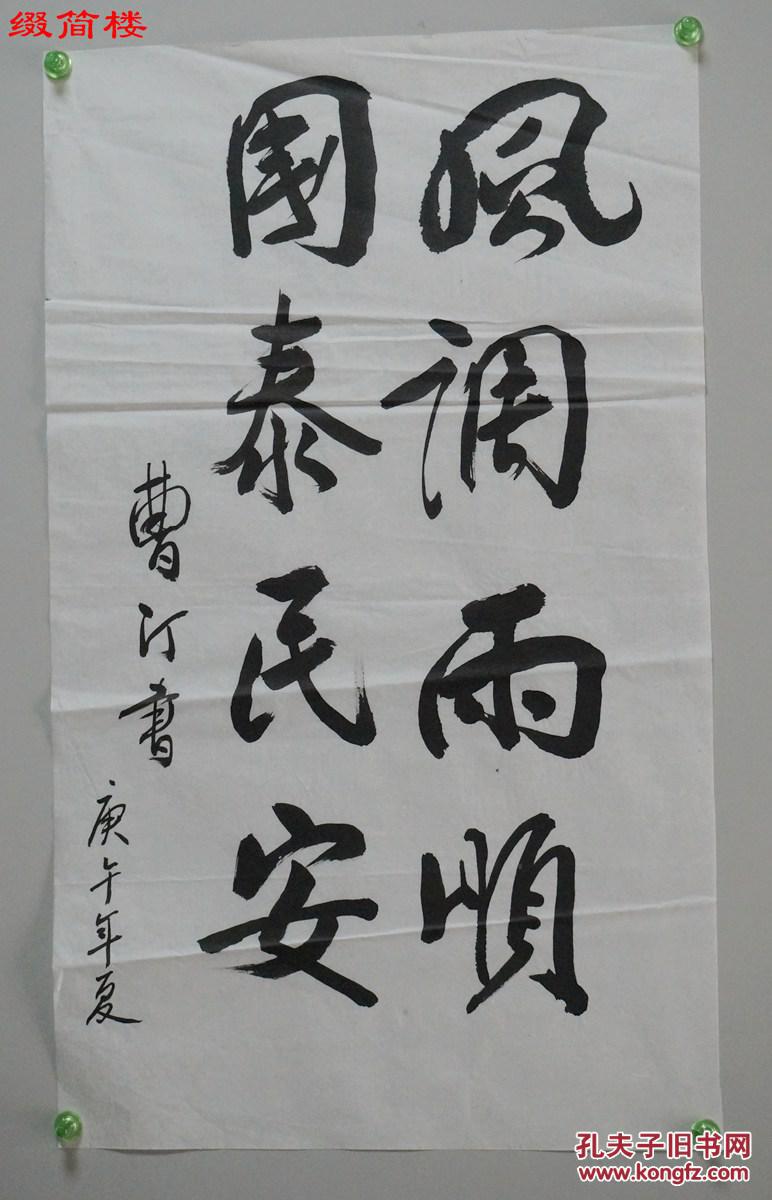 缀简楼
風調雨順
國泰民安
曹汀書
庚午年夏
孔夫子旧书网
www.kongfz.com